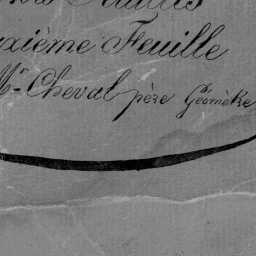 uxième Feuille
Mr Cheval père Géomètre